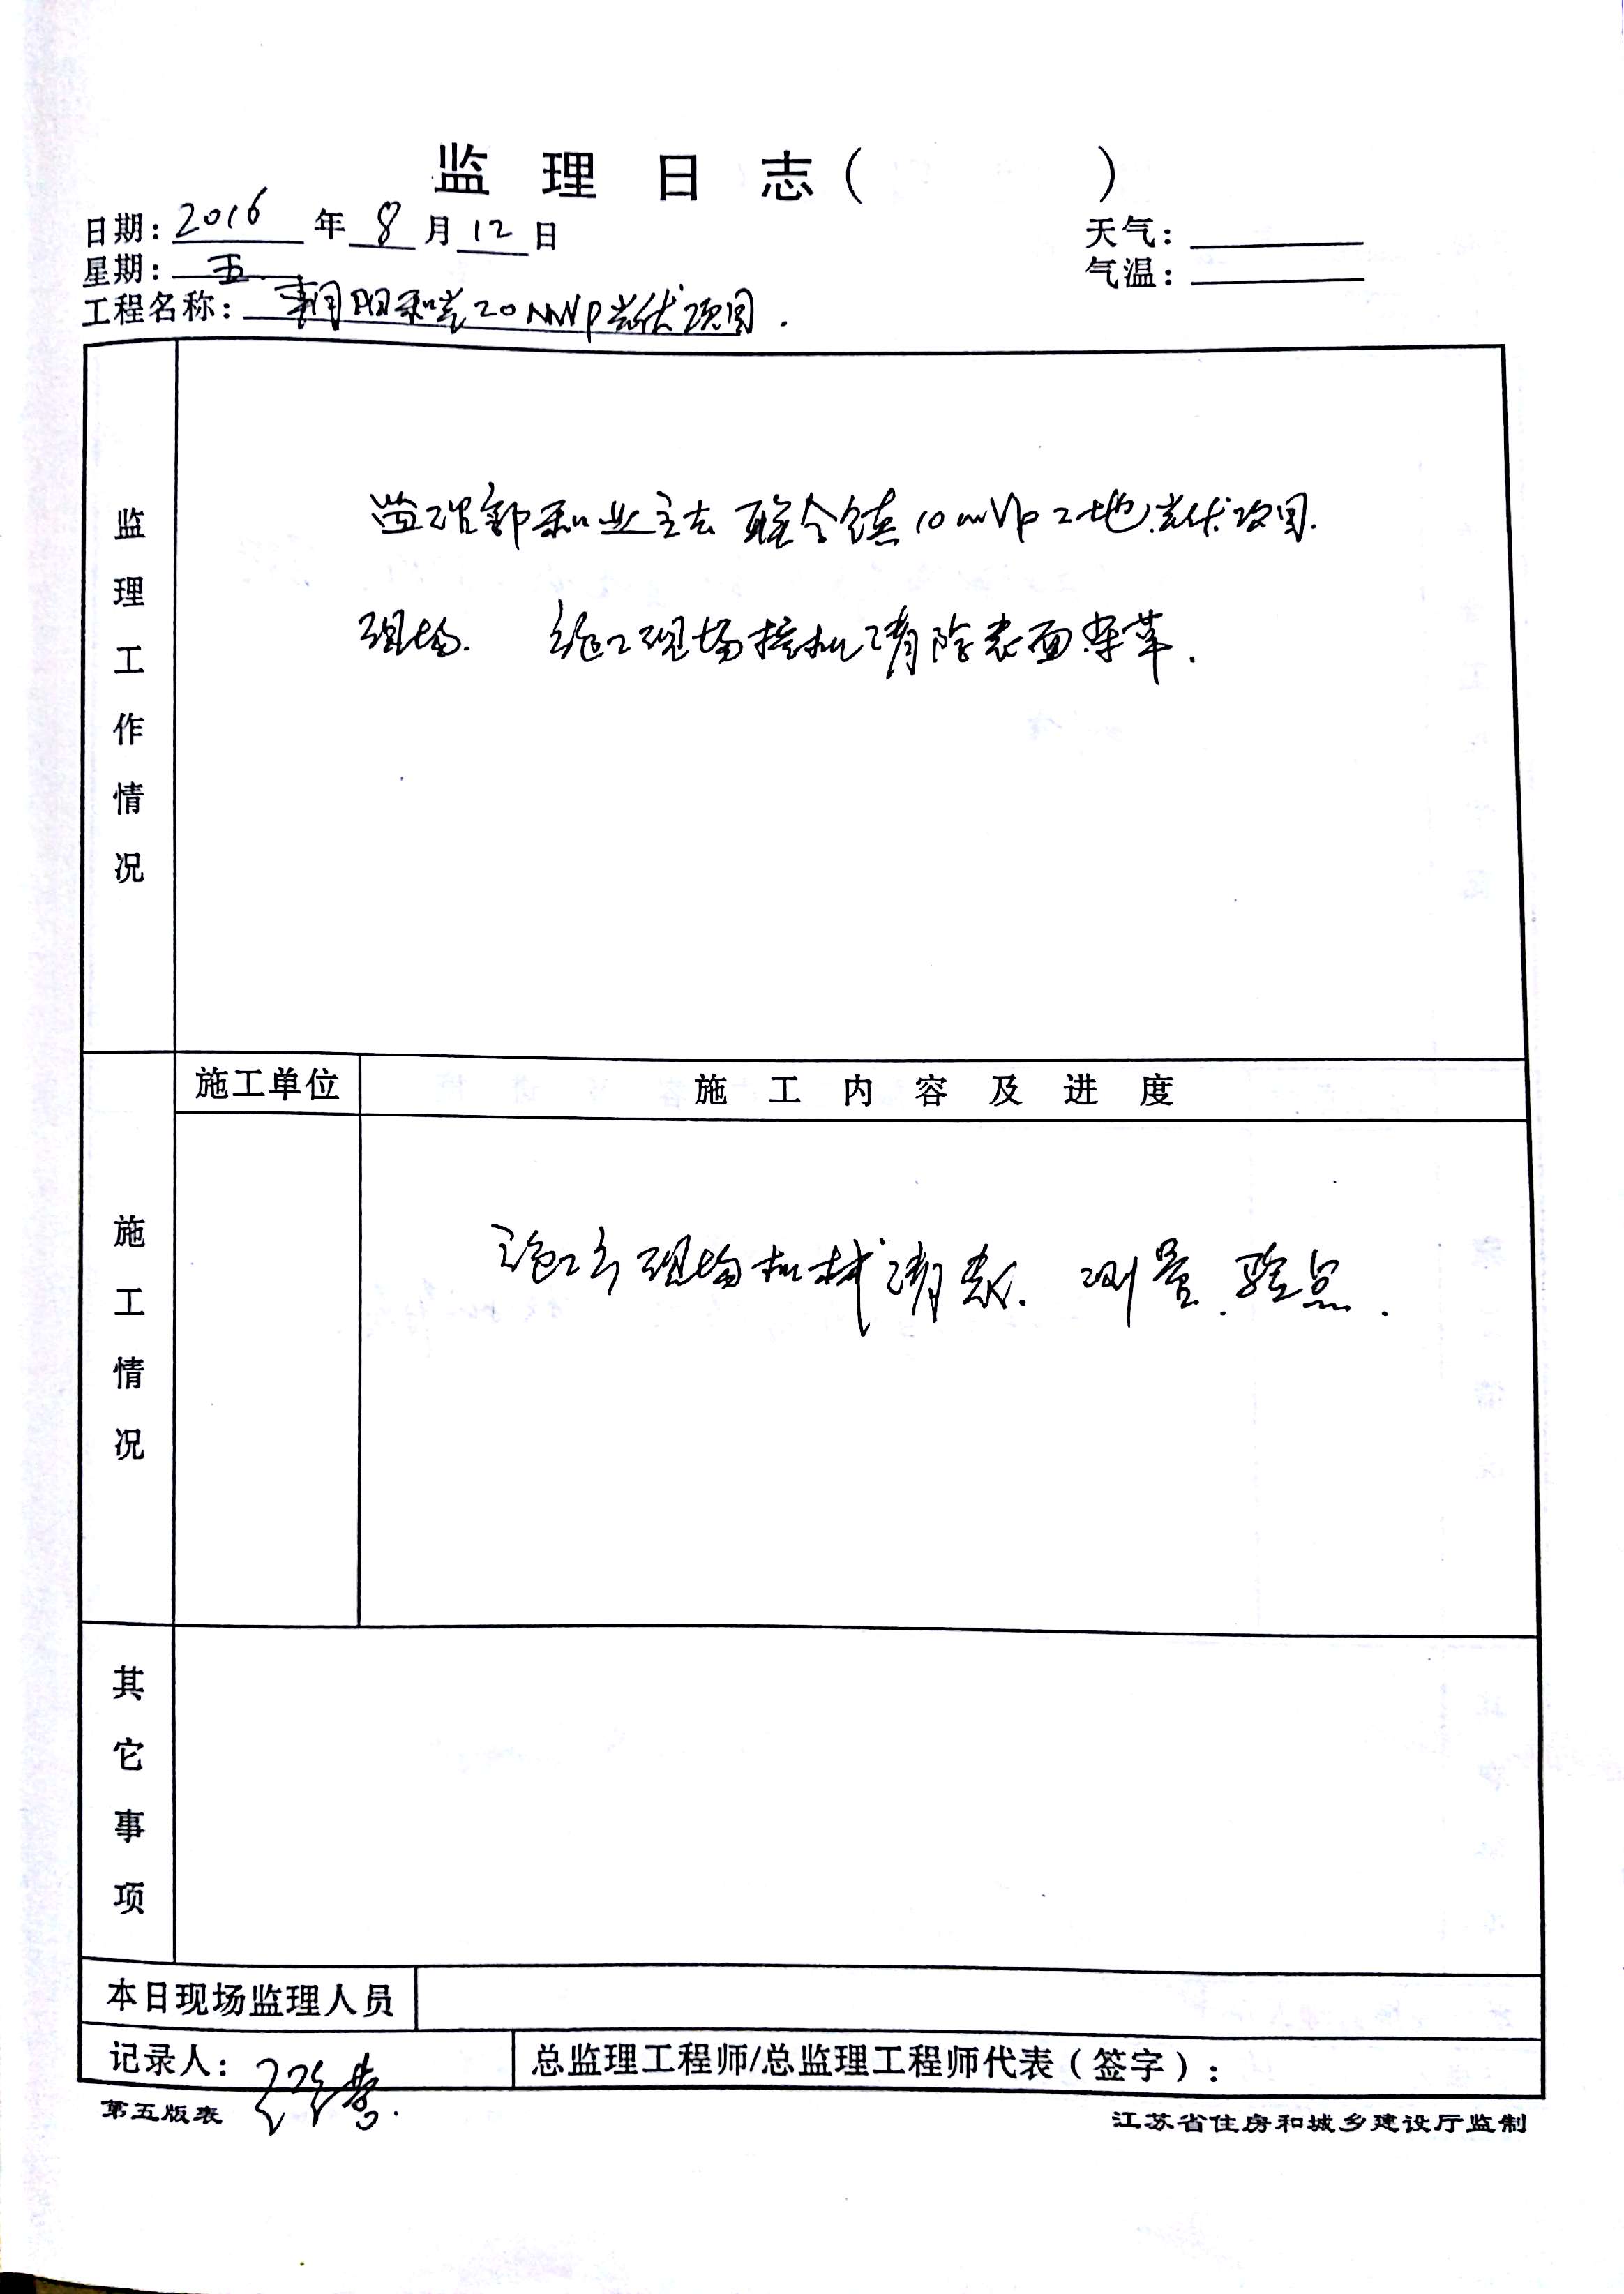 监理日志（ ）
日期：2016年8月12日
天气：
星期：五
气温：
工程名称：朝阳和光20MWp光伏项目.
监理工作情况
监理部和业主去联合镇10mWp工地光伏项目.
现场. 施工现场挖机清除表面杂草.
施工情况
施工单位
施工内容及进度
施工方现场机械清表. 测量.验点.
其它事项
本日现场监理人员
记录人：
总监理工程师/总监理工程师代表（签字）：
第五版表
江苏省住房和城乡建设厅监制